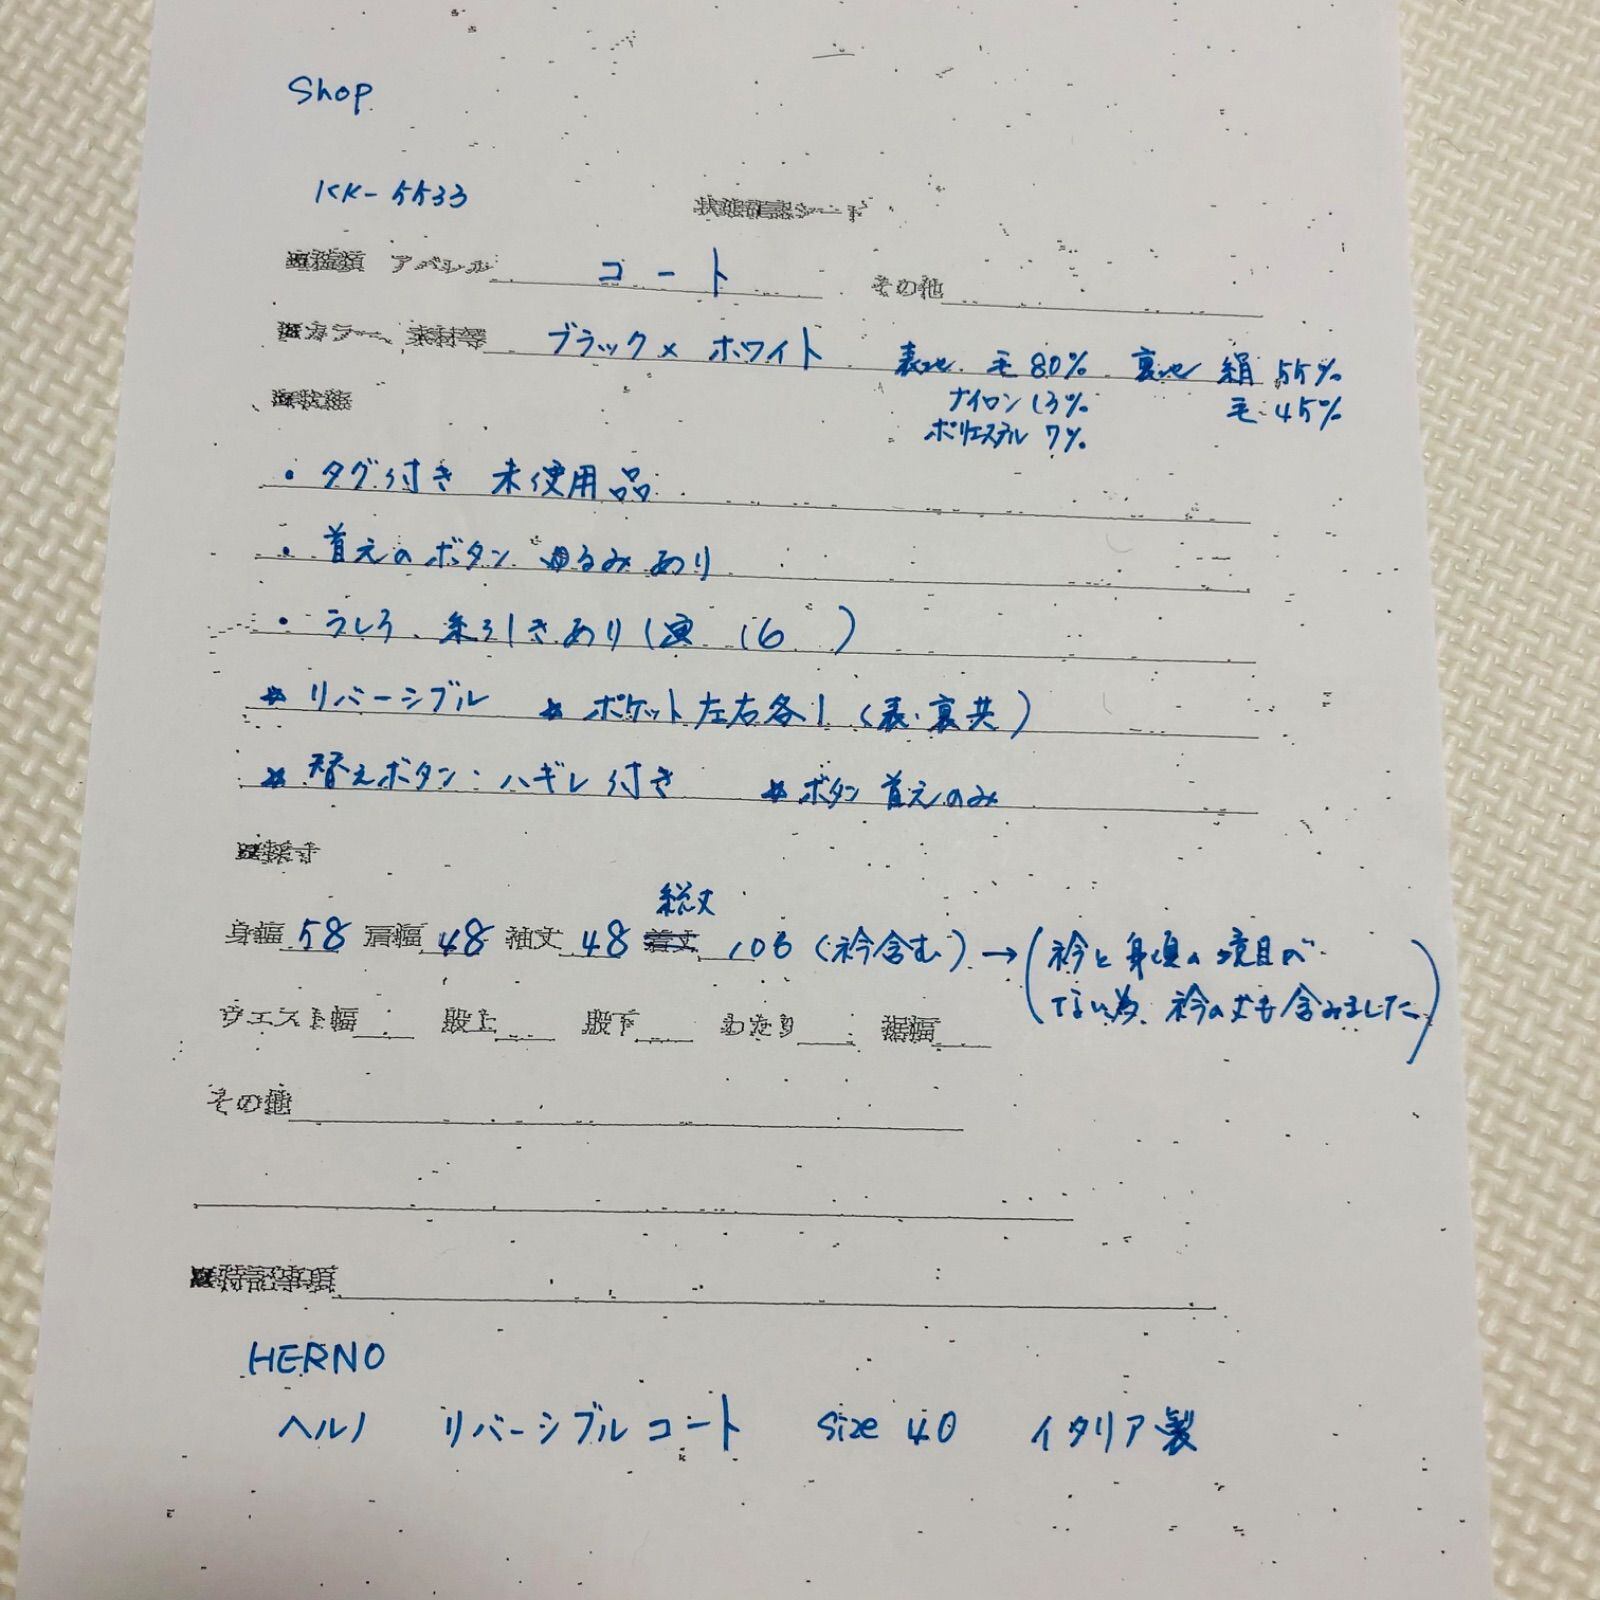 Shop
KK-5533
状態確認シート
■種類 アパレル コート その他
■カラー、素材等 ブラック×ホワイト 表地 毛80% 裏地 絹55%
ナイロン13% 毛45%
ポリエステル7%
■状態
・タグ付き 未使用品
・首元のボタン ゆるみあり
・うしろ 糸引きあり(写 16 )
*リバーシブル *ポケット左右各1(表・裏共)
*替えボタン・ハギレ付き *ボタン首元のみ
■採寸
総丈
身幅58 肩幅48 袖丈48 着丈 106(衿含む)→(衿と身頃の境目が
ない為、衿の丈も含みました)
ウエスト幅 股上 股下 わたり 裾幅
その他
■特記事項
HERNO
ヘルノ リバーシブルコート size 40 イタリア製